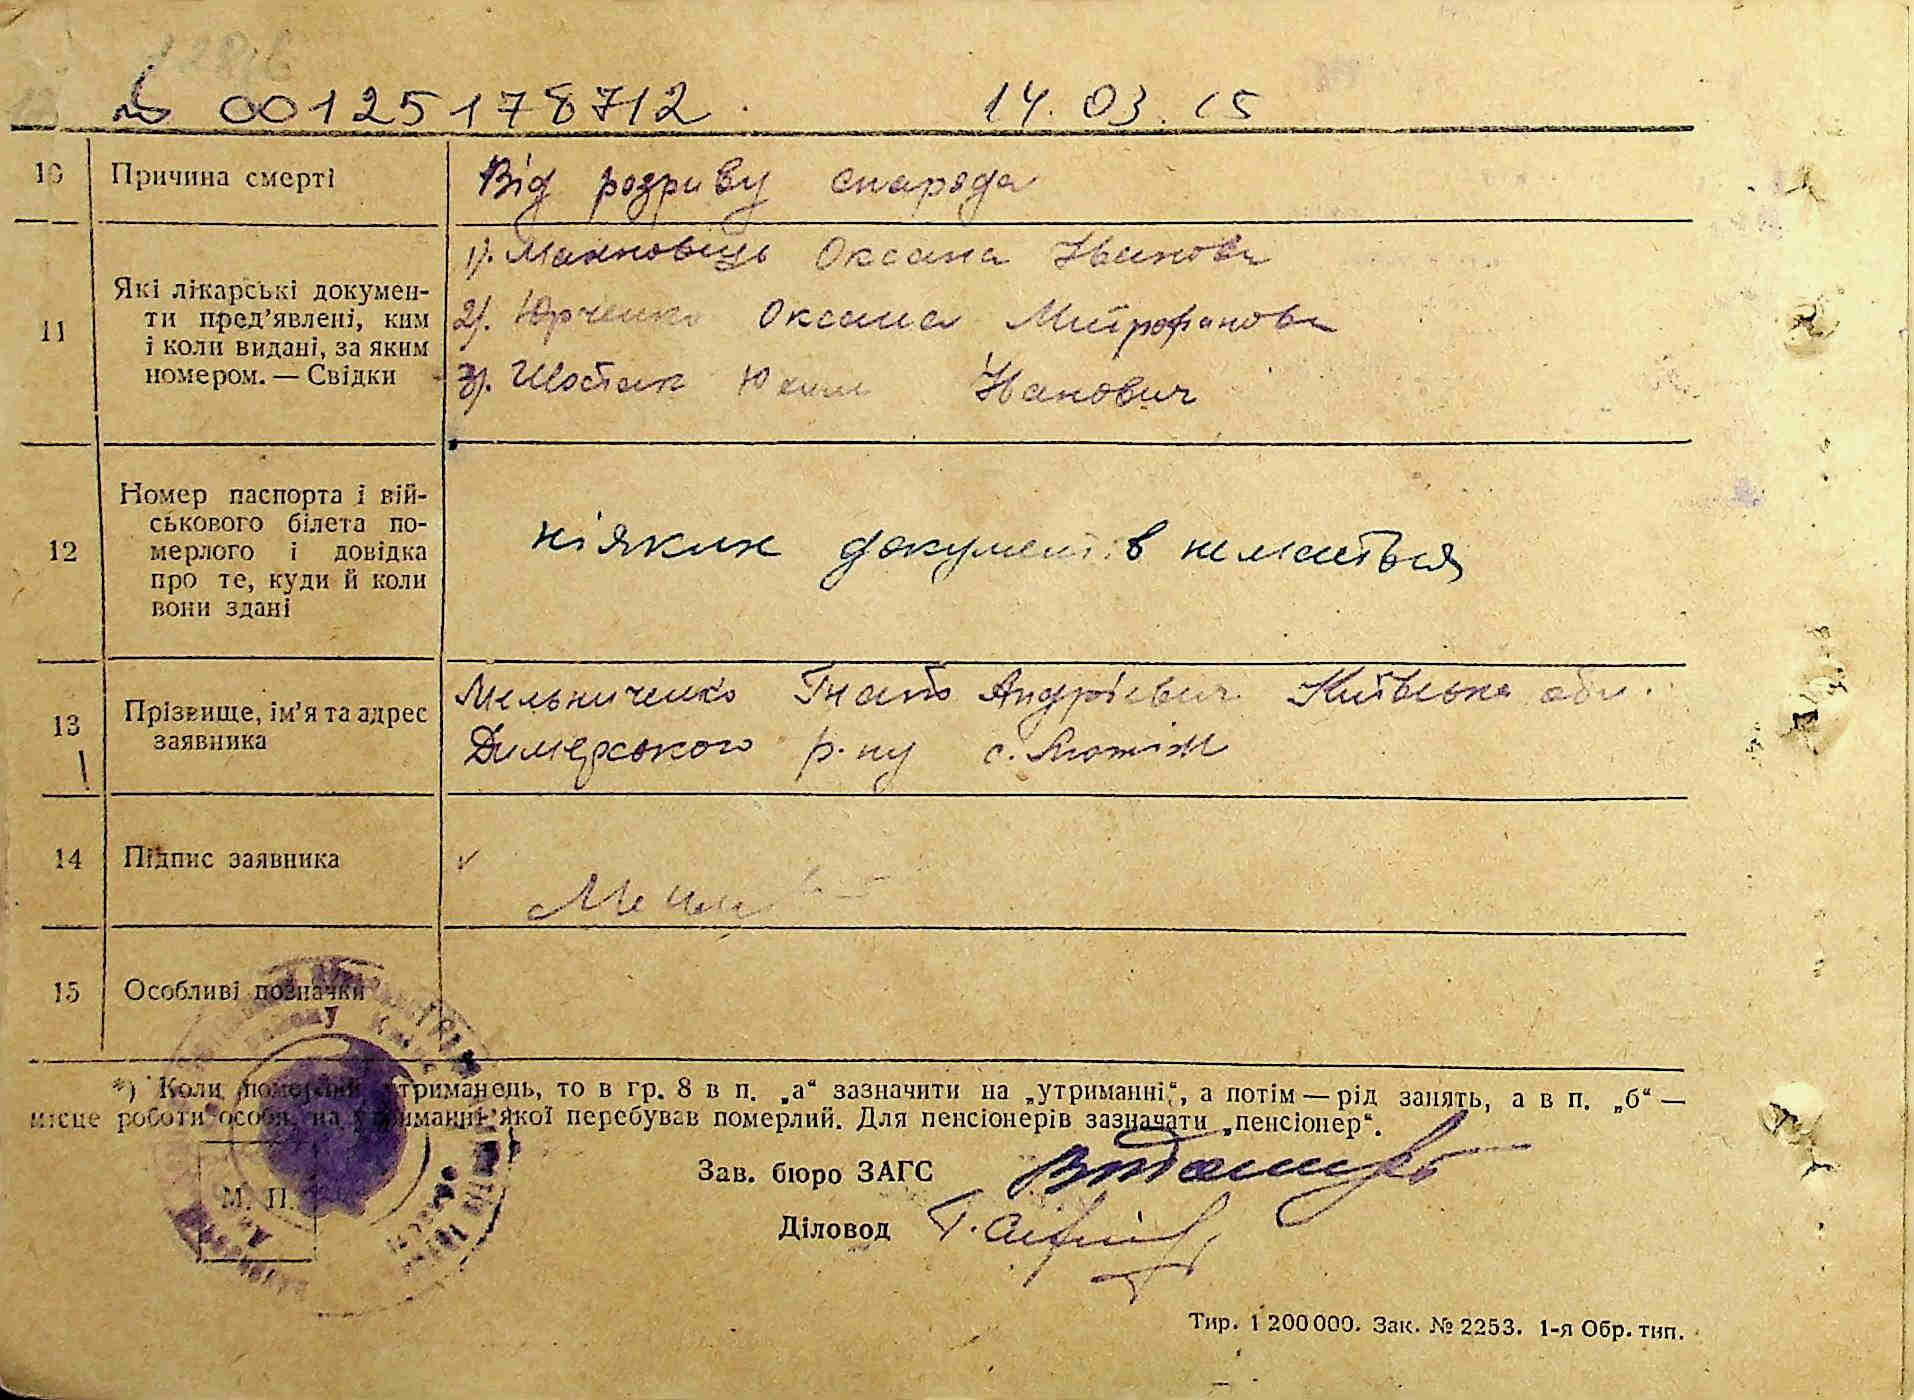 00125178712. 14.03.15
10 Причина смерті Від розриву снаряда
11 Які лікарські документи пред'явлені, ким і коли видані, за яким номером. — Свідки
1). Махновець Оксана Івановн
2). Юрченко Оксана Митрофановн
3). Шостак Юхим Іванович
12 Номер паспорта і вій-
ськового білета по-
мерлого і довідка
про те, куди й коли
вони здані
ніяких документів немається
13 Прізвище, ім'я та адрес
заявника
Мельниченко Гнат Андрієвич Київська обл.
Димерського р-ну с. Лютіж
14 Підпис заявника
15 Особливі позначки
*) Коли померлий утриманець, то в гр. 8 в п. „а“ зазначити на „утриманні“, а потім — рід занять, а в п. „б“ —
місце роботи особи, на утриманні якої перебував померлий. Для пенсіонерів зазначати „пенсіонер“.
Зав. бюро ЗАГС
М. П.
Діловод
Тир. 1 200 000. Зак. № 2253. 1-я Обр. тип.